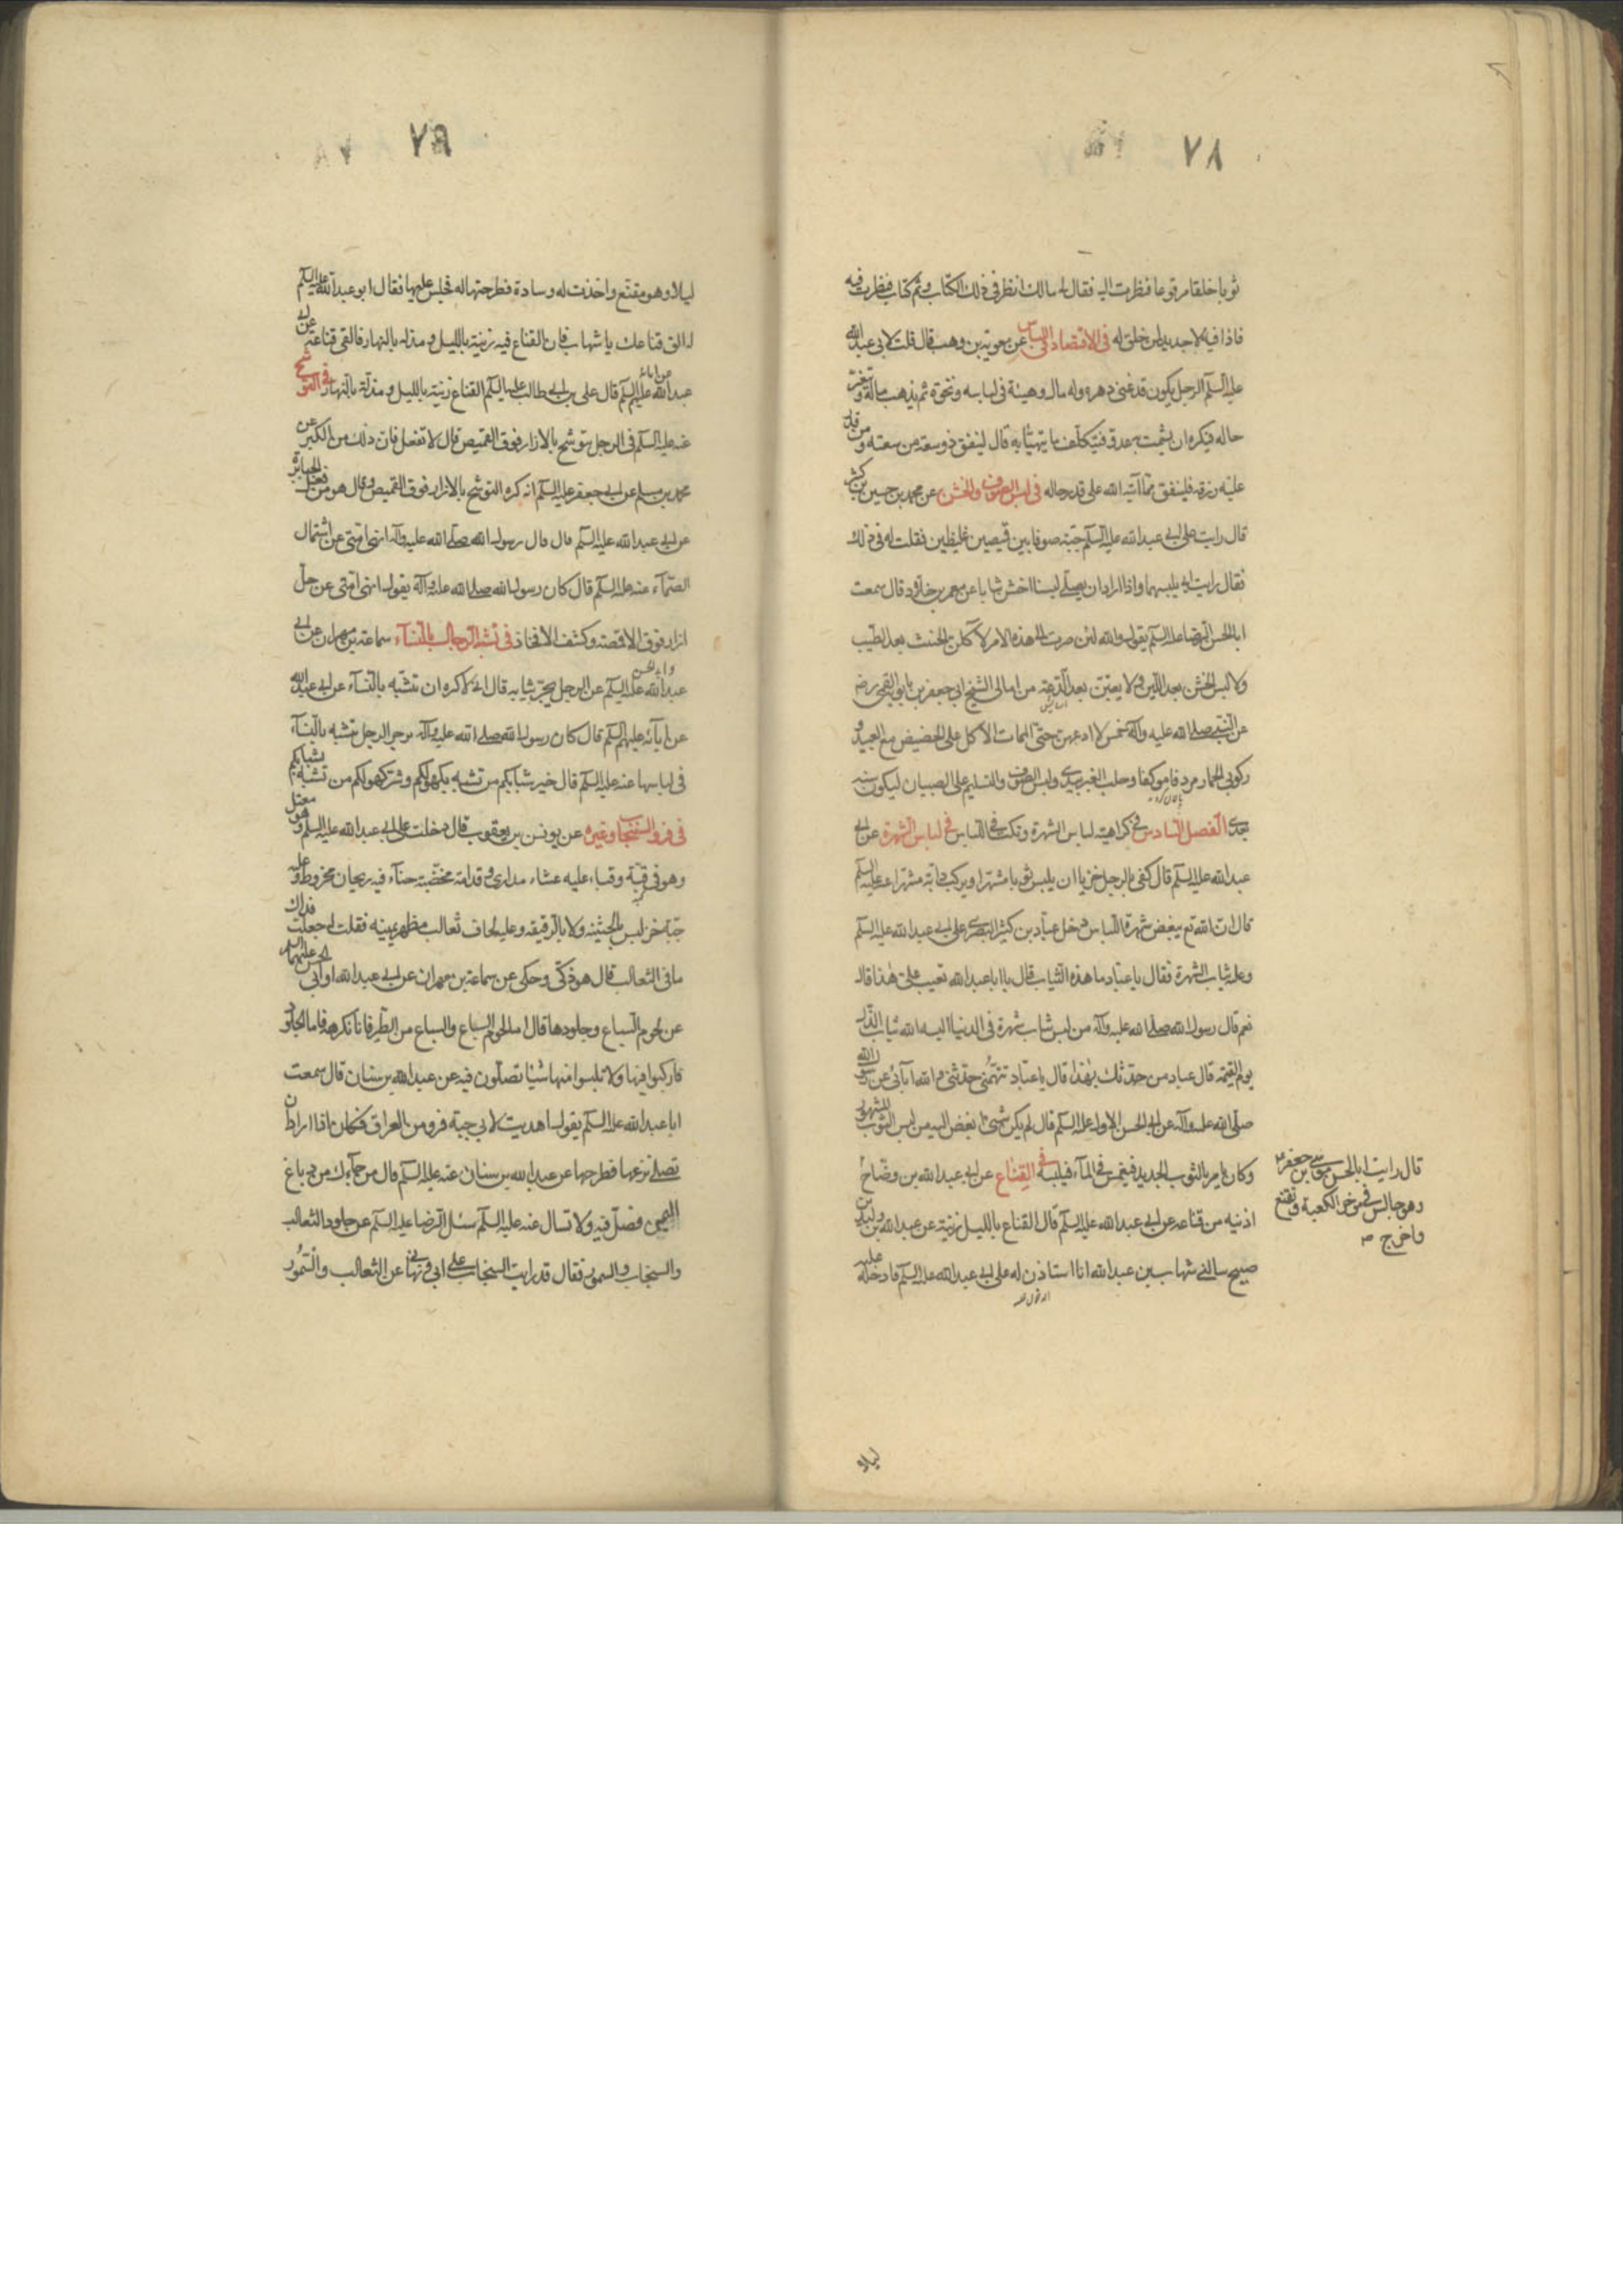 ٧٨
ثوبا خلقا مرقوعا فنظرت اليه فقال لي مالك انظر في ذلك الكتاب وثم كتاب فنظرت فيه
فاذا فيه لا جديد لمن لا خلق له في الاقتصاد في اللباس عن معوية بن وهب قال قلت لابي عبد الله
عليه السلم الرجل يكون قد غنى دهره وله مال وهيئة في لباسه ونخوة ثم يذهب ماله وتتغير
حاله فيكره ان يشمت به عدوه فيتكلف ما يتهيأ به قال لينفق ذو سعة من سعته ومن قدر
عليه رزقه فلينفق مما آتيه الله على قدر حاله في لبس الصوف والخشن عن محمد بن حسين بن كثير
قال رايت على ابي عبد الله عليه السلم جبة صوف بين قميصين غليظين فقلت له في ذلك
فقال رايت ابي يلبسها واذا اراد ان يصلي لبسنا اخشن ثيابنا عن معمر بن خلاد قال سمعت
ابا الحسن الرضا عليه السلم يقول والله لئن صرت الى هذا الامر لآكلن الخبيث بعد الطيب
ولالبسن الخشن بعد اللين ولاتعبن بعد الدعة من امالي الشيخ ابي جعفر بن بابويه القمي رض
عن النبي صلى الله عليه وآله خمس لا ادعهن حتى الممات الاكل على الحضيض مع العبيد و
ركوبي الحمار مردفا موكفا وحلب العنز بيدي ولبس الصوف والتسليم على الصبيان ليكون سنة
بعدي الفصل السادس في كراهية لباس الشهرة ونكت في اللباس في لباس الشهرة عن ابي
عبد الله عليه السلم قال كفى بالرجل خزيا ان يلبس ثوبا مشهرا ويركب دابة مشهرا عنه عليه السلم
قال ان الله تع يبغض شهرة اللباس دخل عباد بن كثير البصري على ابي عبد الله عليه السلم
وعليه ثياب الشهرة فقال يا عباد ما هذه الثياب قال يا ابا عبد الله تعيب علي هذا قال
نعم قال رسول الله صلى الله عليه وآله من لبس ثياب شهرة في الدنيا البسه الله ثياب الذل
يوم القيمة قال عباد من حدثك بهذا قال يا عباد تتهمني حدثني والله آبائي عن رسول الله
صلى الله عليه وآله عن ابي الحسن الاول عليه السلم قال لم يكن شيئ ابغض اليه من لبس الثوب المشهور
وكان يامر بالثوب الجديد فيغمس في الماء فيلبسه في القناع عن ابي عبد الله بن وضاح
قال رايت ابا الحسن موسى بن جعفر ع
وهو جالس في مؤخر الكعبة وتقنع
واخرج صح
اذنيه من قناعه عن ابي عبد الله عليه السلم قال القناع بالليل زينة عن عبد الله بن وليد بن
صبيح سالني شهاب بن عبد الله انا استاذن له على ابي عبد الله عليه السلم فادخلته عليه
ليلا
٧٩
ليلا وهو مقنع واخذت له وسادة فطرحتها له فجلس عليها فقال ابو عبد الله عليه السلم
له الق قناعك يا شهاب فان القناع فيه زينة بالليل ومذلة بالنهار فالقى قناعته عن ابي
عبد الله عن ابائه عليهم السلم قال علي بن ابي طالب عليه السلم القناع زينة بالليل ومذلة بالنهار في التوشح
عنه عليه السلم في الرجل يتوشح بالازار فوق القميص قال لا تفعل فان ذلك من الكبر عن
محمد بن مسلم عن ابي جعفر عليه السلم انه كره التوشح بالازار فوق القميص وقال هو من فعل الجبابرة
عن ابي عبد الله عليه السلم قال قال رسول الله صلى الله عليه وآله انهى امتي عن اشتمال
الصماء عنه عليه السلم قال كان رسول الله صلى الله عليه وآله يقول انهى امتي عن حل
ازار فوق الاقمصة وكشف الافخاذ في تشبه الرجال بالنساء سماعة بن مهران عن ابي
عبد الله عليه السلم عن الرجل يجر ثيابه قال اني لاكره ان تتشبه بالنساء عن ابي عبد الله
عن آبائه عليهم السلم قال كان رسول الله صلى الله عليه وآله يزجر الرجل يتشبه بالنساء
في لباسها عنه عليه السلم قال خير شبابكم من تشبه بكهولكم وشر كهولكم من تشبه بشبابكم
في فرو السنجاب وغيره عن يونس بن يعقوب قال دخلت على ابي عبد الله عليه السلم وهو معتل
وهو في قبة وقباء عليه غشاء مداري وقدامه مخضبة حناء فيه ريحان مخروط وعليه
جبة خز ليس بالثخينة ولا بالرقيقة وعليه لحاف ثعالب مظهر يمينه فقلت له جعلت فداك
ما في الثعالب قال هوذكي وحكى عن سماعة بن مهران عن ابي عبد الله او ابي الحسن عليهما السلم
عن لحوم السباع وجلودها قال اما لحوم السباع والسباع من الطير فانا نكرهه فاما الجلود
فاركبوا فيها ولا تلبسوا منها شيئا تصلون فيه عن عبد الله بن سنان قال سمعت
ابا عبد الله عليه السلم يقول اهديت لابي جبة فرو من العراق فكان اذا اراد ان
يصلي نزعها فطرحها عن عبد الله بن سنان عنه عليه السلم قال ما جاءك من دباغ
اليمن فصل فيه ولا تسال عنه عليه السلم سئل الرضا عليه السلم عن جلود الثعالب
والسنجاب والسمور فقال قد رايت السنجاب على ابي ونهاني عن الثعالب والسمور